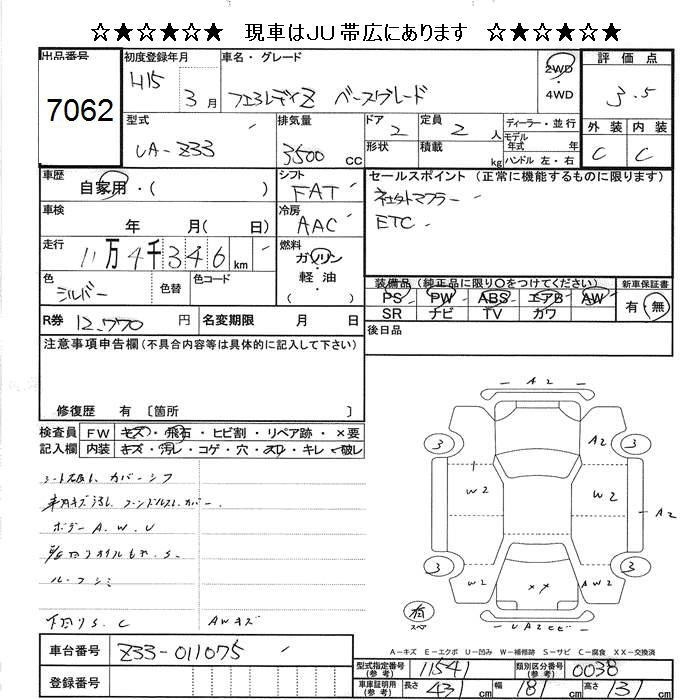 ☆★☆★☆★ 現車はJU帯広にあります ☆★☆★☆★
出品番号 7062
初度登録年月 H15 3月
車名・グレード フェアレディZ ベースグレード
2WD
4WD
評価点 3.5
外装 内装
C C
型式 UA-Z33
排気量 3500 cc
ドア 2
定員 2 人
形状
積載 kg
ディーラー・並行
モデル年式 年
ハンドル 左・右
車歴 自家用・( )
シフト FAT
セールスポイント(正常に機能するものに限ります)
社外マフラー
ETC
車検 年 月( 日)
冷房 AAC
走行 11万4千346km
燃料 ガソリン・軽油 ( )
色 シルバー
色替
色コード
装備品(純正品に限り○をつけてください)
PS PW ABS エアB AW
SR ナビ TV カワ
新車保証書
有・無
R券 12,770円
名変期限 月 日
後日品
注意事項申告欄(不具合内容等は具体的に記入して下さい)
修復歴 有 〔箇所 〕
検査員記入欄
FW キズ・飛石・ヒビ割・リペア跡・×要
内装 キズ・汚レ・コゲ・穴・スレ・キレ・破レ
カバーシワ
ボデー A.W.U
下廻りS.C AWキズ
A2
3 A2 3
W2 W2 A2
3 3
W2 ×× AW2
有 スペ
UA2ヒビ
A-キズ E-エクボ U-凹み W-補修跡 S-サビ C-腐食 XX-交換済
車台番号 Z33-011075
登録番号
型式指定番号(参考) 11541
類別区分番号(参考) 0038
車庫証明用(参考) 長さ 431cm 幅 181cm 高さ 131cm